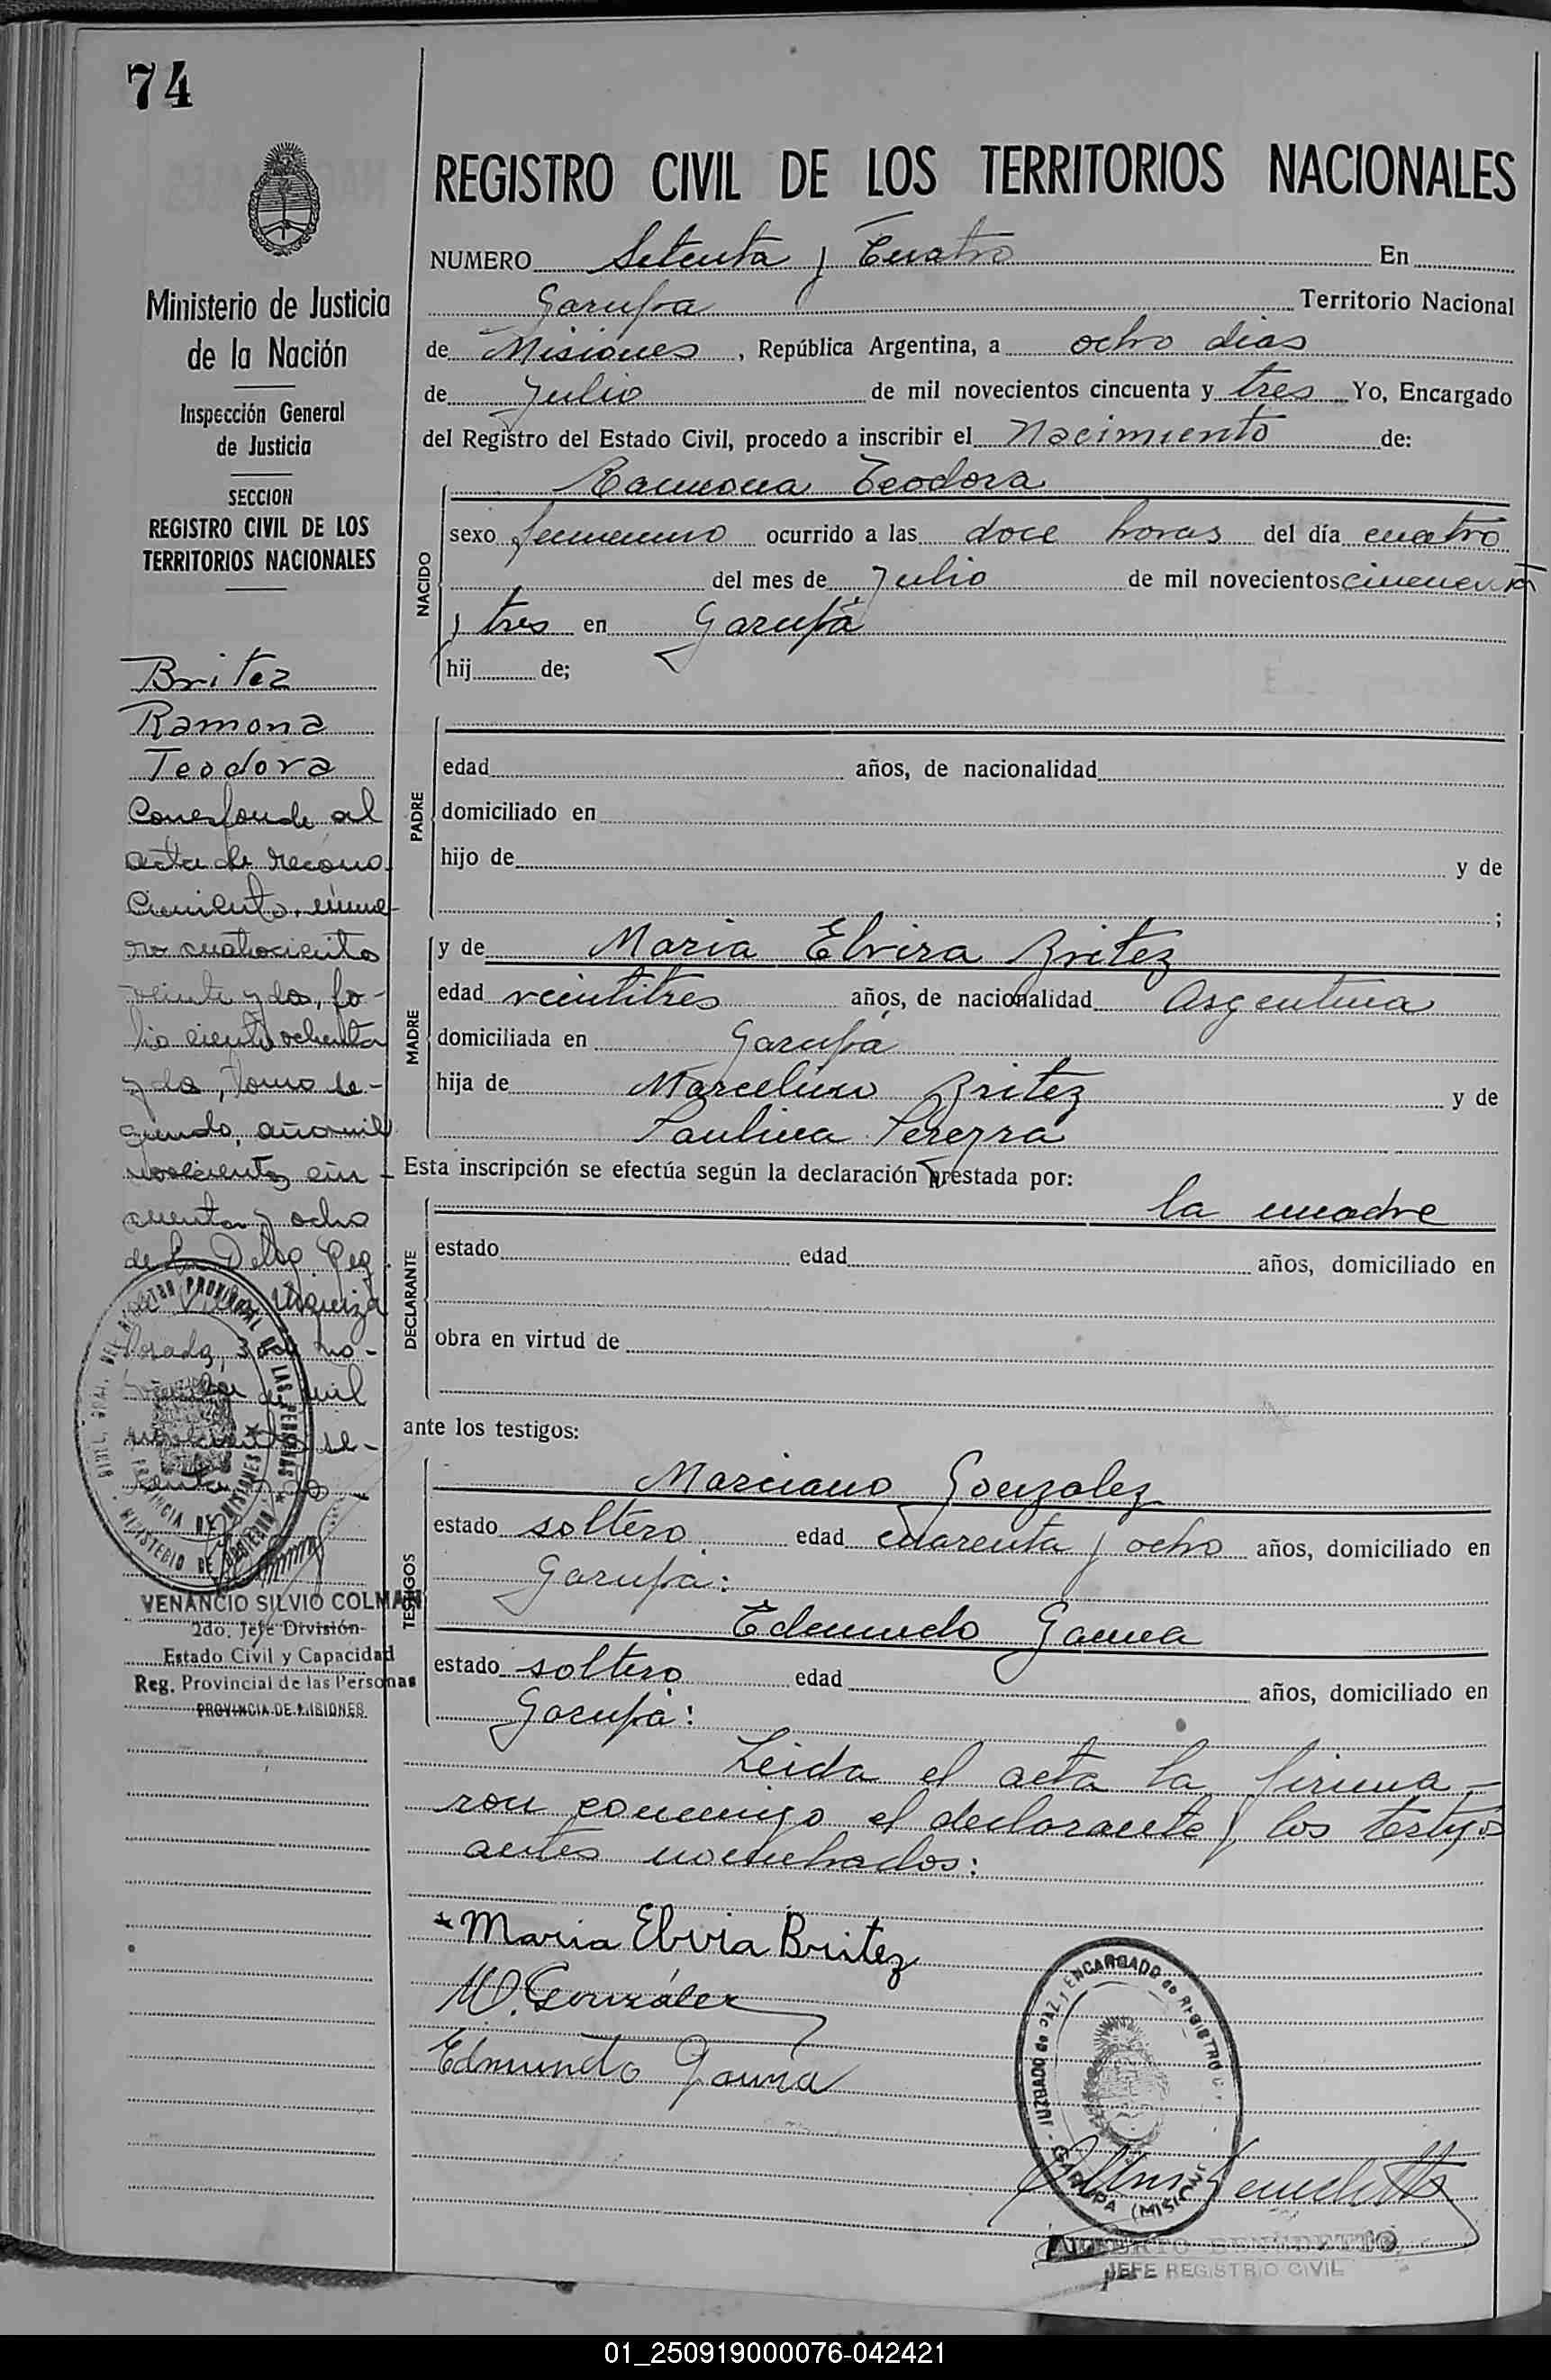 74
Ministerio de Justicia
de la Nación
Inspección General
de Justicia
SECCION
REGISTRO CIVIL DE LOS
TERRITORIOS NACIONALES
Britez
Ramona
Teodora
Corresponde al
acta de recono
cimiento, núme-
ro cuatrocientos
veinte y dos, fo-
lio ciento ochenta
y dos, tomo se-
gundo, año mil
novecientos cin-
cuenta y ocho
de la Deleg. Reg.
de Villa Urquiza
Posadas, 30 de no-
viembre de mil
novecientos se-
senta y
DEL REGISTRO PROVINCIAL DE LAS PERSONAS
PROVINCIA DE MISIONES
MINISTERIO DE GOBIERNO
VENANCIO SILVIO COLMAN
2do. Jefe División
Estado Civil y Capacidad
Reg. Provincial de las Personas
PROVINCIA DE MISIONES
REGISTRO CIVIL DE LOS TERRITORIOS NACIONALES
NUMERO Setenta y Cuatro En
Garupa Territorio Nacional
de Misiones, República Argentina, a ocho dias
de Julio de mil novecientos cincuenta y tres Yo, Encargado
del Registro del Estado Civil, procedo a inscribir el Nacimiento de:
NACIDO
Ramona Teodora
sexo femenino ocurrido a las doce horas del día cuatro
del mes de Julio de mil novecientos cincuenta
y tres en Garupá
hij de;
PADRE
edad años, de nacionalidad
domiciliado en
hijo de y de
;
MADRE
y de Maria Elvira Britez
edad veintitres años, de nacionalidad Argentina
domiciliada en Garupá
hija de Marcelino Britez y de
Paulina Pereyra
Esta inscripción se efectúa según la declaración prestada por:
DECLARANTE
la madre
estado edad años, domiciliado en
obra en virtud de
ante los testigos:
TESTIGOS
Marciano Gonzalez
estado soltero edad cuarenta y ocho años, domiciliado en
Garupa:
Edmundo Gauna
estado soltero edad años, domiciliado en
Garupá:
Leida el acta la firma-
ron conmigo el declarante y los testigos
antes nombrados:
Maria Elvia Britez
M. González
Edmundo Gauna
JUZGADO de PAZ y ENCARGADO de REGISTRO C.
GARUPA (MISIONES)
BENEDETTO
JEFE REGISTRO CIVIL
01_250919000076-042421